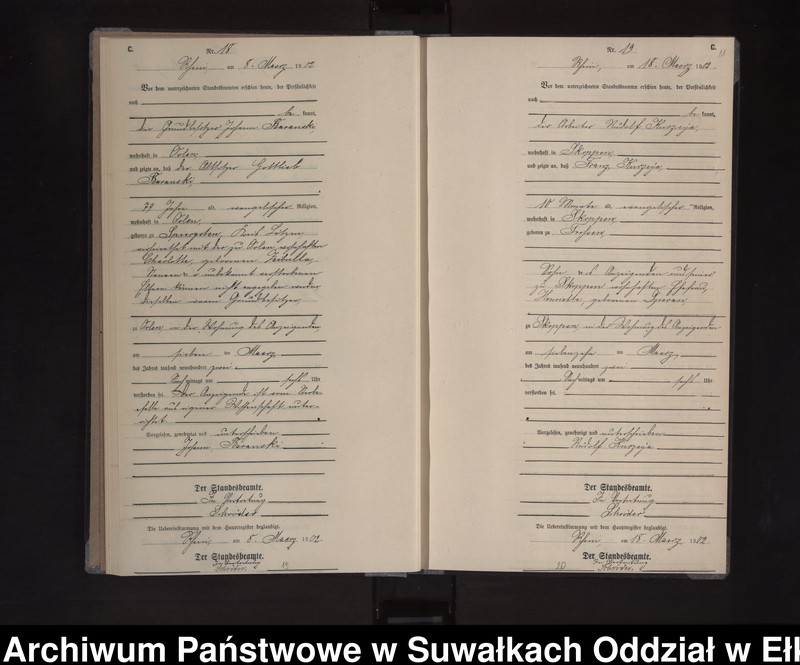 C.
Nr. 18
Rhein, am 8. Maerz 1902
Vor dem unterzeichneten Standesbeamten erschien heute, der Persönlichkeit
nach
be kannt,
der Grundbesitzer Johann Karanski
wohnhaft in Orlen,
und zeigte an, daß der Altsitzer Gottlieb
Karanski,
79 Jahre evangelischer Religion,
wohnhaft in Orlen,
geboren zu Kreis Lötzen
verheirathet mit der zu Orlen wohnhaften
Charlotte, geborenen
Namen unbekannt verstorbenen
Eltern können nicht angegeben werden
zu Orlen in der Wohnung des Anzeigenden
am sieben ten Maerz
des Jahres tausend neunhundert zwei
Nachmittags um sechs Uhr
verstorben sei. Der Anzeigende ist vom Sterbe-
falle aus eigener Wissenschaft unter-
richtet.
Vorgelesen, genehmigt und unterschrieben
Johann Karanski
Der Standesbeamte.
In Vertretung
Schröder
Die Uebereinstimmung mit dem Hauptregister beglaubigt.
Rhein, am 8. Maerz 1902
Der Standesbeamte.
In Vertretung
Schröder
19
C.
Nr. 19
Rhein, am 18. Maerz 1902
Vor dem unterzeichneten Standesbeamten erschien heute, der Persönlichkeit
nach
be kannt,
der Arbeiter Rudolf Kurzeja,
wohnhaft in Skoppen,
und zeigte an, daß Franz Kurzeja,
10 Monate evangelischer Religion,
wohnhaft in Skoppen,
geboren zu
Sohn des Anzeigenden und seiner
zu Skoppen wohnhaften Ehefrau,
Henriette, geborenen
zu Skoppen, in der Wohnung des Anzeigenden
am siebenzehn ten Maerz
des Jahres tausend neunhundert zwei
Nachmittags um sechs Uhr
verstorben sei.
Vorgelesen, genehmigt und unterschrieben
Rudolf Kurzeja
Der Standesbeamte.
In Vertretung
Schröder
Die Uebereinstimmung mit dem Hauptregister beglaubigt.
Rhein, am 18. Maerz 1902
Der Standesbeamte.
In Vertretung
Schröder
20
Archiwum Państwowe w Suwałkach Oddział w Ełk